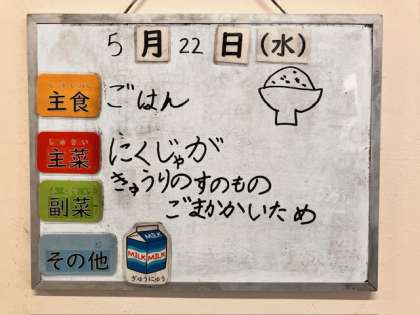 5月22日(水)
主食 ごはん
しゅさい
主菜 にくじゃが
きゅうりのすのもの
副菜 ごまかかいため
その他
MILK
MILK MILK
ぎゅうにゅう